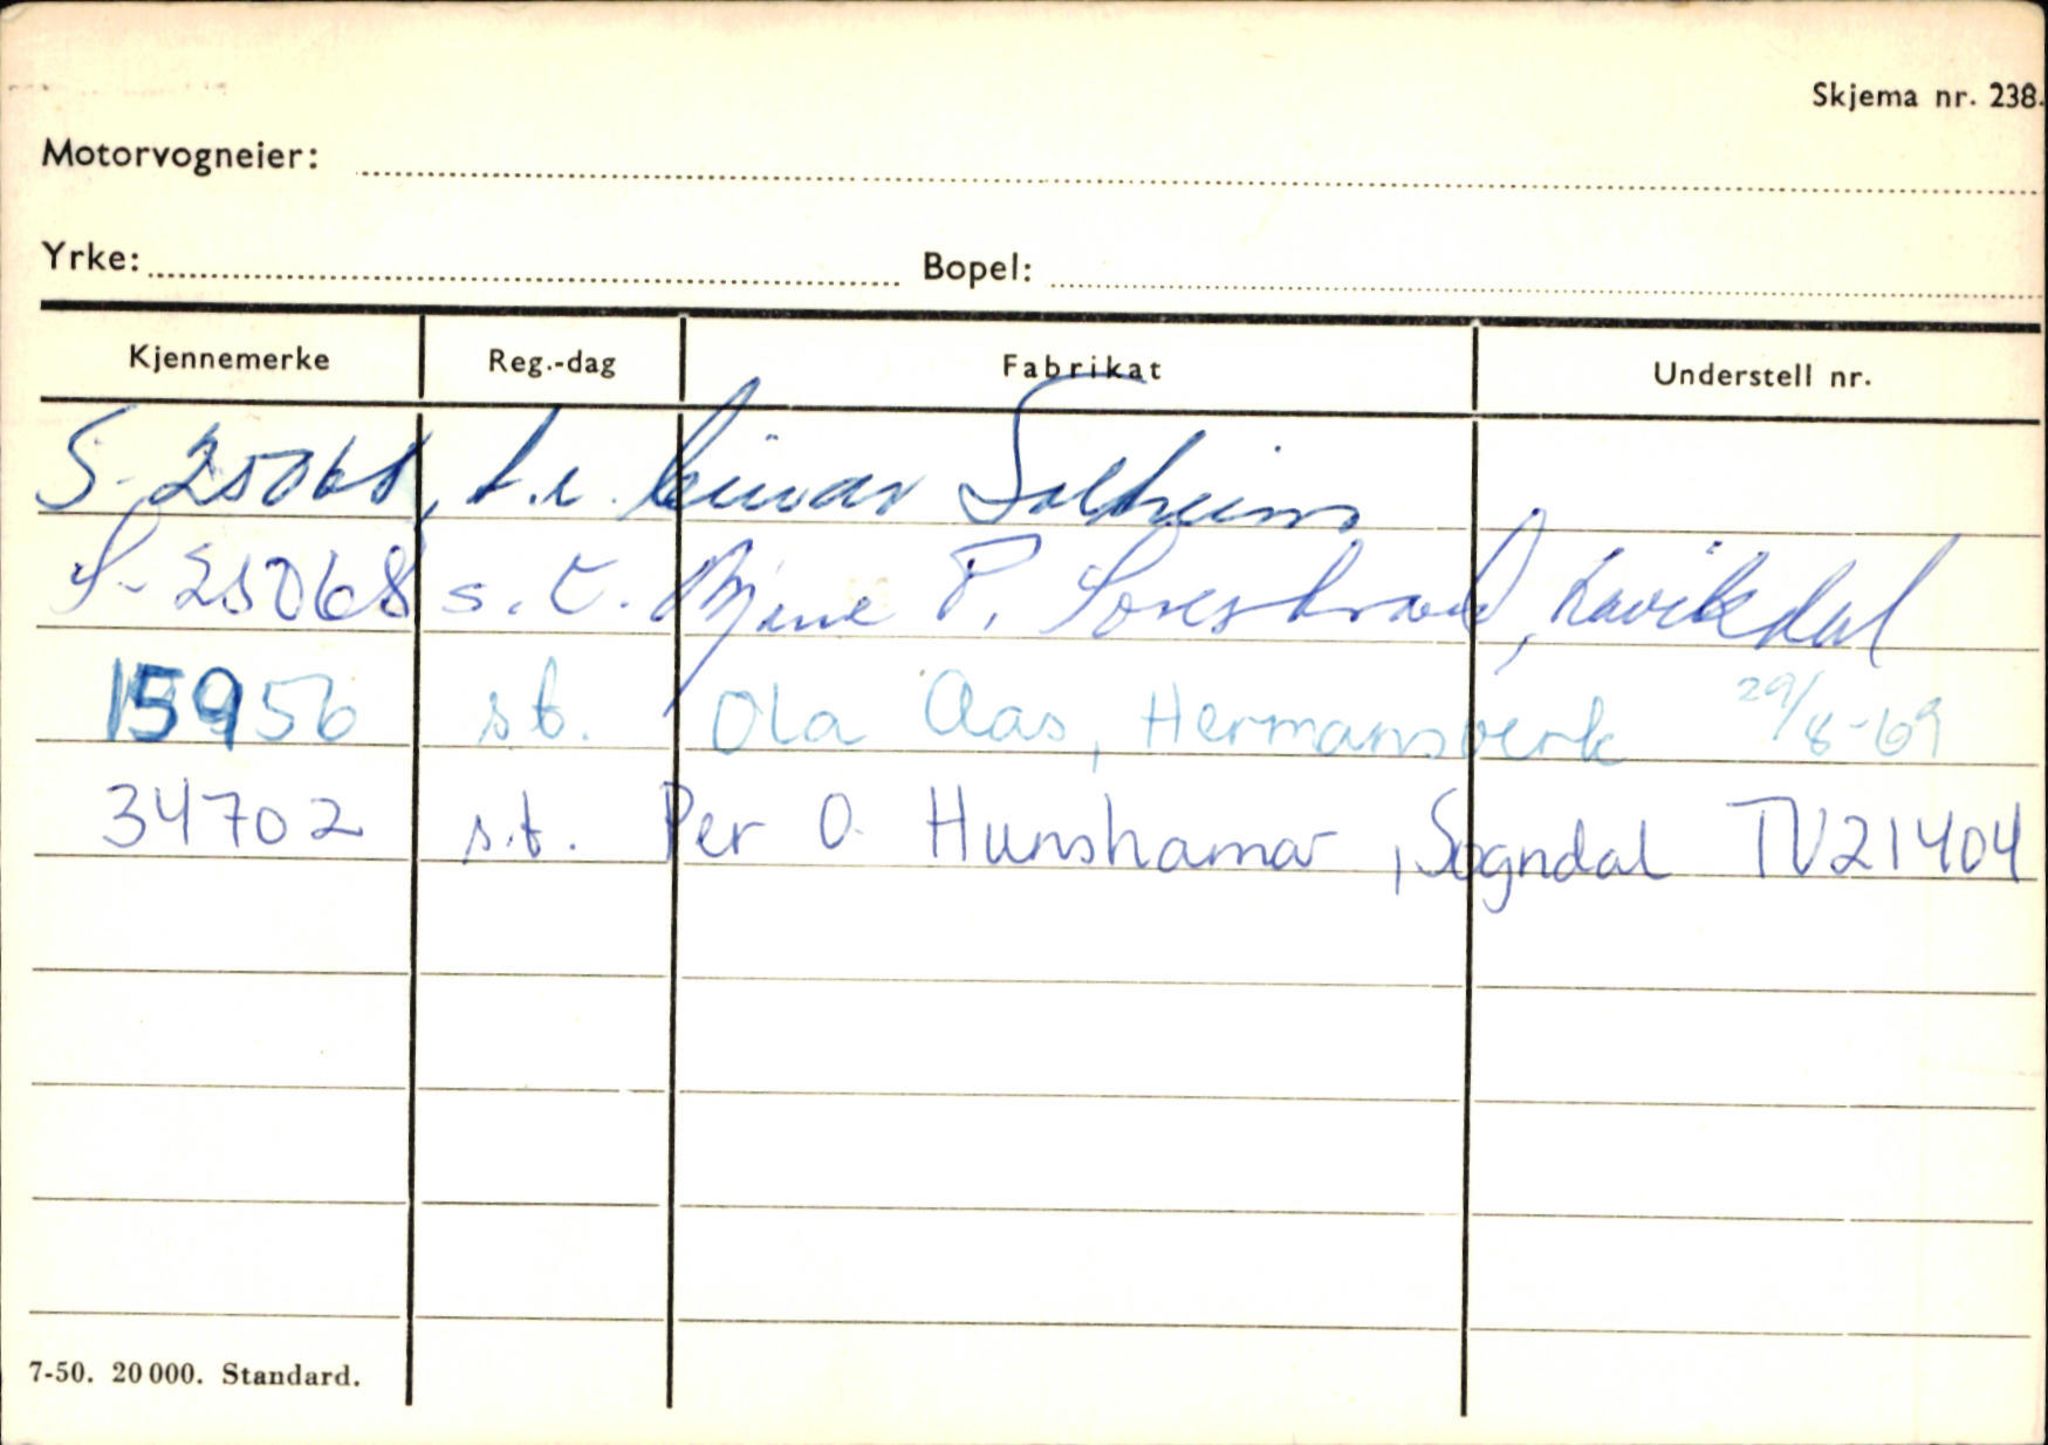 Skjema nr. 238.
Motorvogneier:
Yrke: Bopel:
Kjennemerke Reg.-dag Fabrikat Understell nr.
S-25068, Solheim
S-25068 s.t. P. Lavikdal
15956 st. Ola Aas, Hermansverk 29/8-69
34702 s.t. Per O. Hunshamar, Sogndal TV21404
7-50. 20 000. Standard.